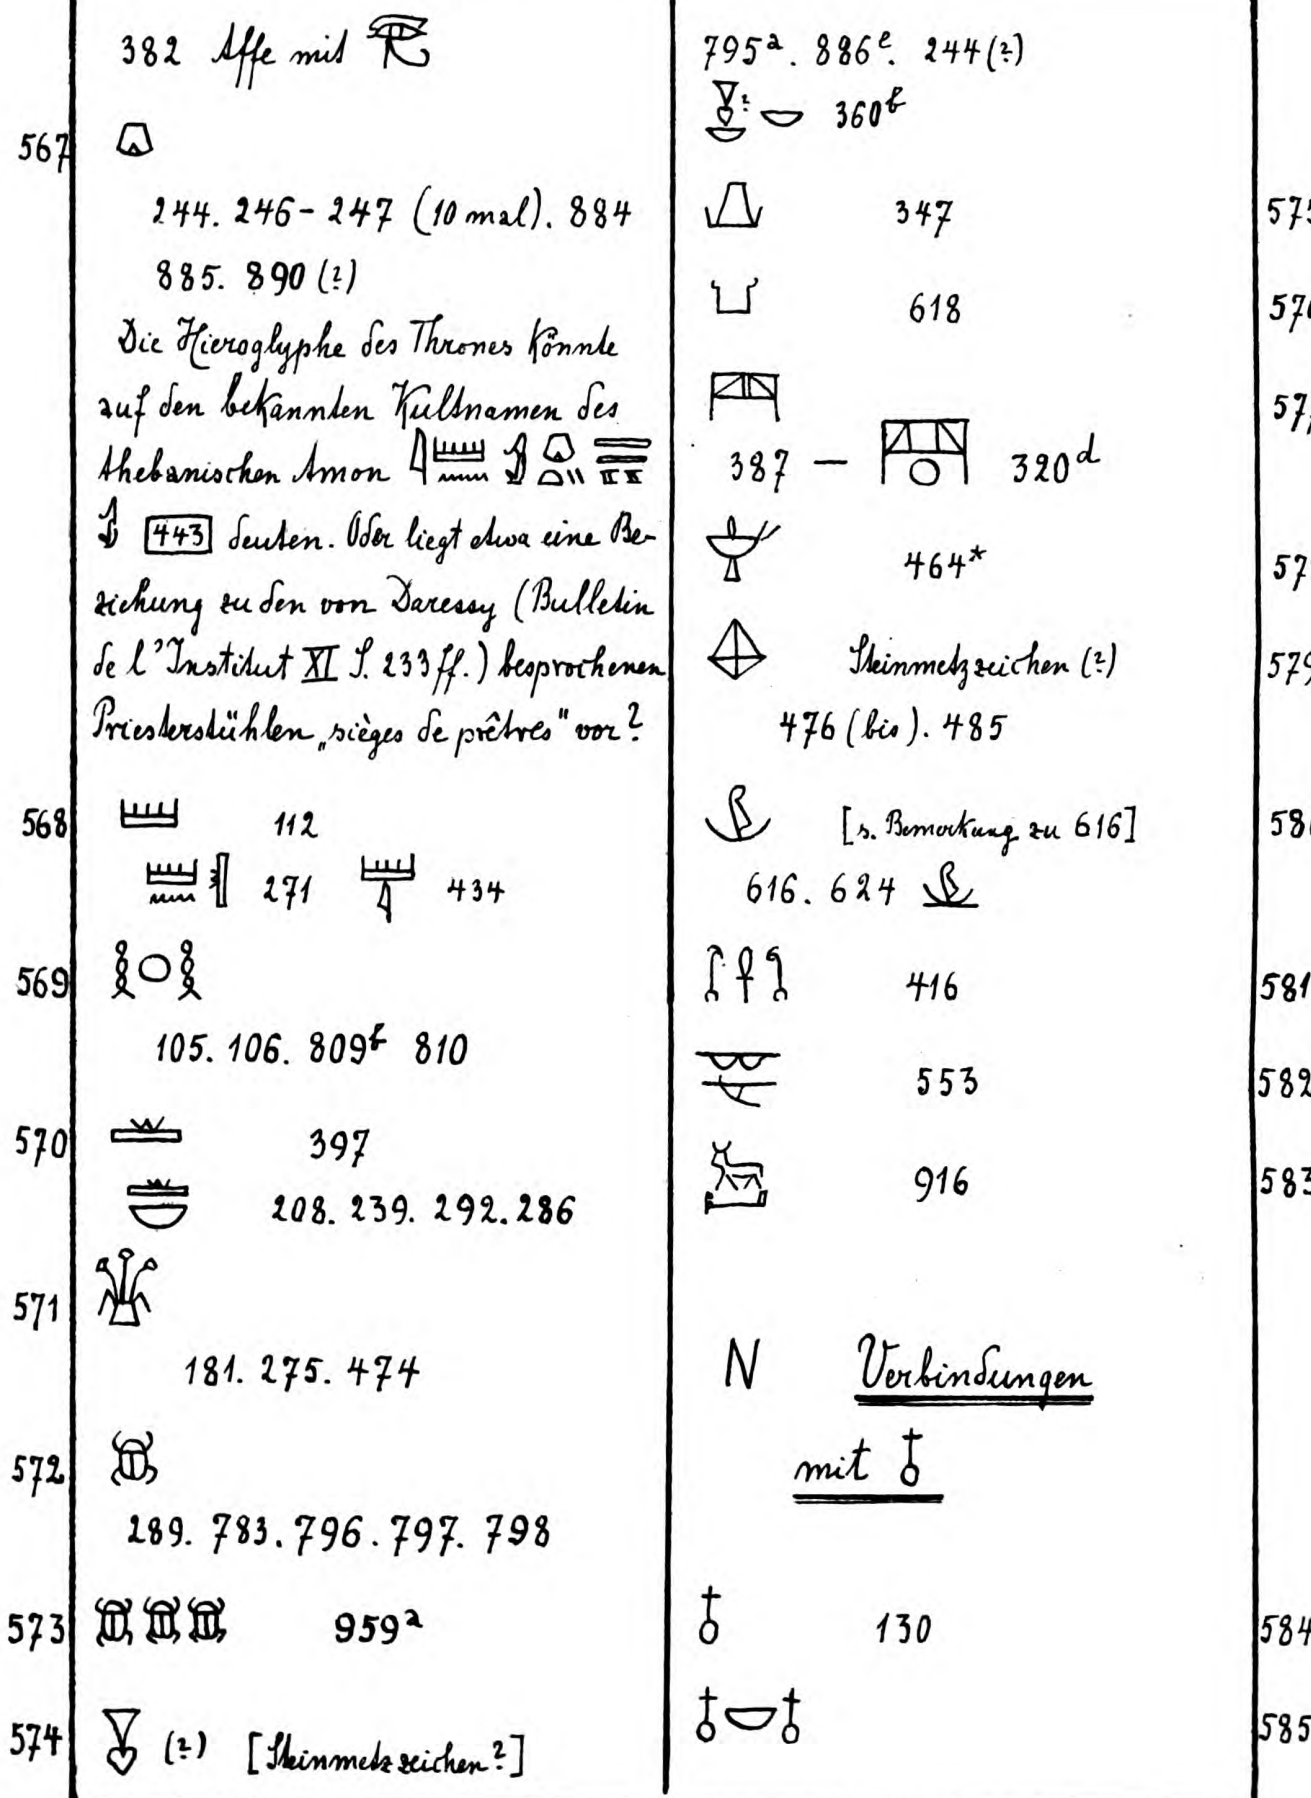 382 Affe mit 𓂀
567
244. 246-247 (10 mal). 884
885. 890 (?)
Die Hieroglyphe des Thrones könnte
auf den bekannten Kultnamen des
thebanischen Amon
443 deuten. Oder liegt etwa eine Be-
ziehung zu den von Daressy (Bulletin
de l'Institut XI S. 233 ff.) besprochenen
Priesterstühlen „sièges de prêtres" vor?
568 𓏠 112
271 434
569 𓎛𓇳𓎛
105. 106. 809ᵇ 810
570 397
208. 239. 292. 286
571
181. 275. 474
572 𓆣
289. 783. 796. 797. 798
573 𓆣𓆣𓆣 959ᵃ
574 (?) [Steinmetzzeichen?]
795ᵃ. 886ᵉ. 244 (?)
? 360ᵇ
347
618
387 — 320ᵈ
464*
Steinmetzzeichen (?) 579
476 (bis). 485
[s. Bemerkung zu 616]
616. 624
416 581
553 582
916 583
N Verbindungen
mit 𓄤
𓄤 130 584
𓄤𓎟𓄤 585